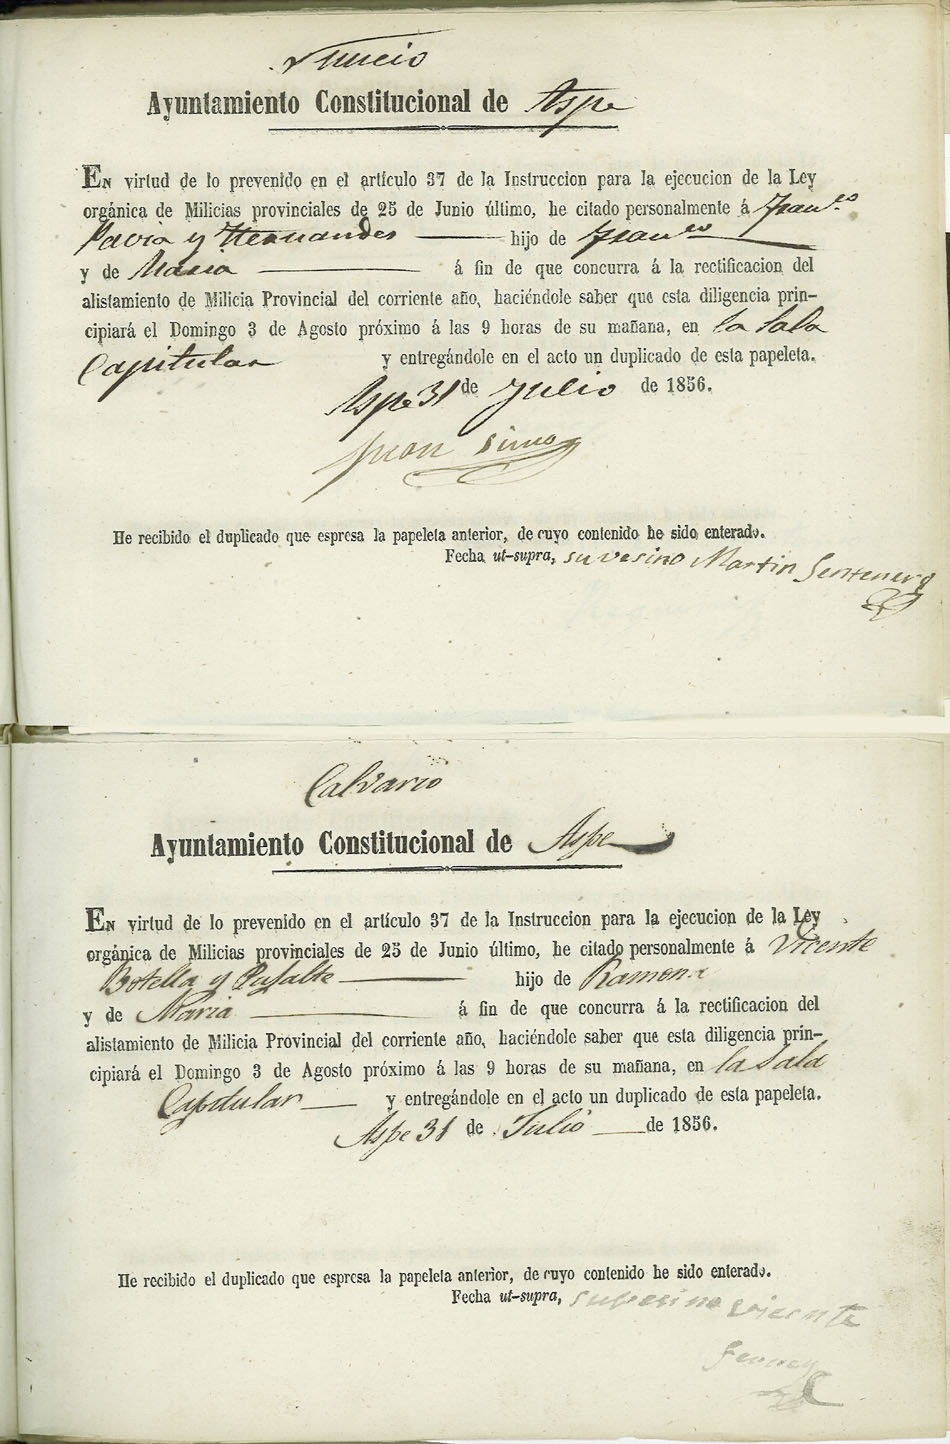 Ayuntamiento Constitucional de Aspe
EN virtud de lo prevenido en el artículo 37 de la Instruccion para la ejecucion de la Ley
orgánica de Milicias provinciales de 25 de Junio último, he citado personalmente á Franco
Pavia y Hernandes hijo de Franco
y de Maria á fin de que concurra á la rectificacion del
alistamiento de Milicia Provincial del corriente año, haciéndole saber que esta diligencia prin-
cipiará el Domingo 3 de Agosto próximo á las 9 horas de su mañana, en la Sala
Capitular y entregándole en el acto un duplicado de esta papeleta.
Aspe 31 de Julio de 1856.
Juan
He recibido el duplicado que espresa la papeleta anterior, de cuyo contenido he sido enterado.
Fecha ut-supra, su vesino Martin
Calvario
Ayuntamiento Constitucional de Aspe
EN virtud de lo prevenido en el artículo 37 de la Instruccion para la ejecucion de la Ley
orgánica de Milicias provinciales de 25 de Junio último, he citado personalmente á Vicente
Botella y hijo de Ramon
y de Maria á fin de que concurra á la rectificacion del
alistamiento de Milicia Provincial del corriente año, haciéndole saber que esta diligencia prin-
cipiará el Domingo 3 de Agosto próximo á las 9 horas de su mañana, en la Sala
Capitular y entregándole en el acto un duplicado de esta papeleta.
Aspe 31 de Julio de 1856.
He recibido el duplicado que espresa la papeleta anterior, de cuyo contenido he sido enterado.
Fecha ut-supra, su vesino